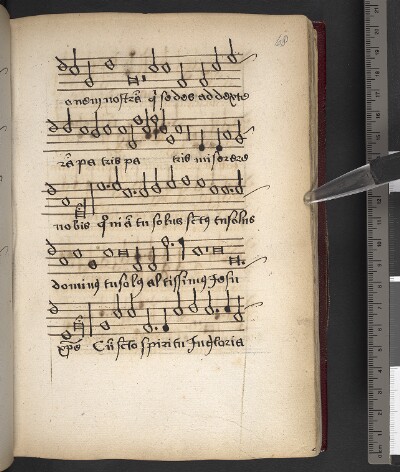 68
onem nostrā q sedes ad dexte
rā pa tris pa tris miserere
nobis qm̄ iā tu solus sctꝰ tu solus
dominꝰ tu solꝰ al tissimꝰ Jesu
xpe Cū scto spiritu In gloria